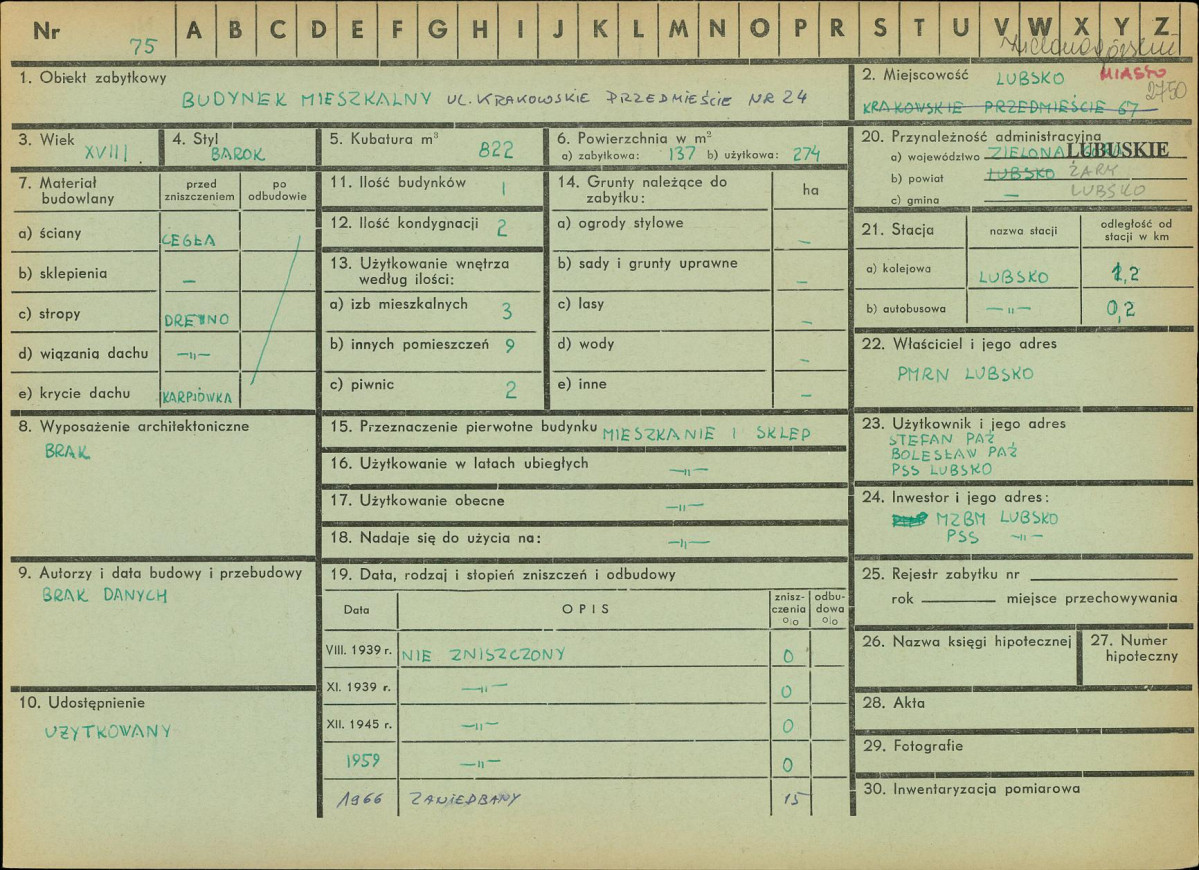 Nr 75 A B C D E F G H I J K L M N O P R S T U V W X Y Z
1. Obiekt zabytkowy
BUDYNEK MIESZKALNY UL. KRAKOWSKIE PRZEDMIEŚCIE NR 24
2. Miejscowość LUBSKO MIASTO
2750
KRAKOWSKIE PRZEDMIEŚCIE 67
3. Wiek XVIII.
4. Styl BAROK
5. Kubatura m³ 822
6. Powierzchnia w m²
a) zabytkowa: 137 b) użytkowa: 274
20. Przynależność administracyjna
a) województwo ZIELONA LUBUSKIE
b) powiat LUBSKO ŻARY
c) gmina — LUBSKO
7. Materiał budowlany
przed zniszczeniem
po odbudowie
a) ściany CEGŁA
b) sklepienia —
c) stropy DREWNO
d) wiązania dachu —„—
e) krycie dachu KARPIÓWKA
11. Ilość budynków 1
12. Ilość kondygnacji 2
13. Użytkowanie wnętrza
według ilości:
a) izb mieszkalnych 3
b) innych pomieszczeń 9
c) piwnic 2
14. Grunty należące do
zabytku:
ha
a) ogrody stylowe —
b) sady i grunty uprawne —
c) lasy —
d) wody —
e) inne —
21. Stacja
nazwa stacji
odległość od
stacji w km
a) kolejowa LUBSKO 1,2
b) autobusowa —„— 0,2
22. Właściciel i jego adres
PMRN LUBSKO
8. Wyposażenie architektoniczne
BRAK
15. Przeznaczenie pierwotne budynku MIESZKANIE I SKLEP
16. Użytkowanie w latach ubiegłych —„—
17. Użytkowanie obecne —„—
18. Nadaje się do użycia na: —„—
23. Użytkownik i jego adres
STEFAN PAŹ,
BOLESŁAW PAŹ
PSS LUBSKO
24. Inwestor i jego adres:
MZBM LUBSKO
PSS —„—
9. Autorzy i data budowy i przebudowy
BRAK DANYCH
10. Udostępnienie
UŻYTKOWANY
19. Data, rodzaj i stopień zniszczeń i odbudowy
Data
OPIS
znisz-
czenia
%
odbu-
dowa
%
VIII. 1939 r. NIE ZNISZCZONY 0
XI. 1939 r. —„— 0
XII. 1945 r. —„— 0
1959 —„— 0
1966 ZANIEDBANY 15
25. Rejestr zabytku nr
rok miejsce przechowywania
26. Nazwa księgi hipotecznej
27. Numer
hipoteczny
28. Akta
29. Fotografie
30. Inwentaryzacja pomiarowa